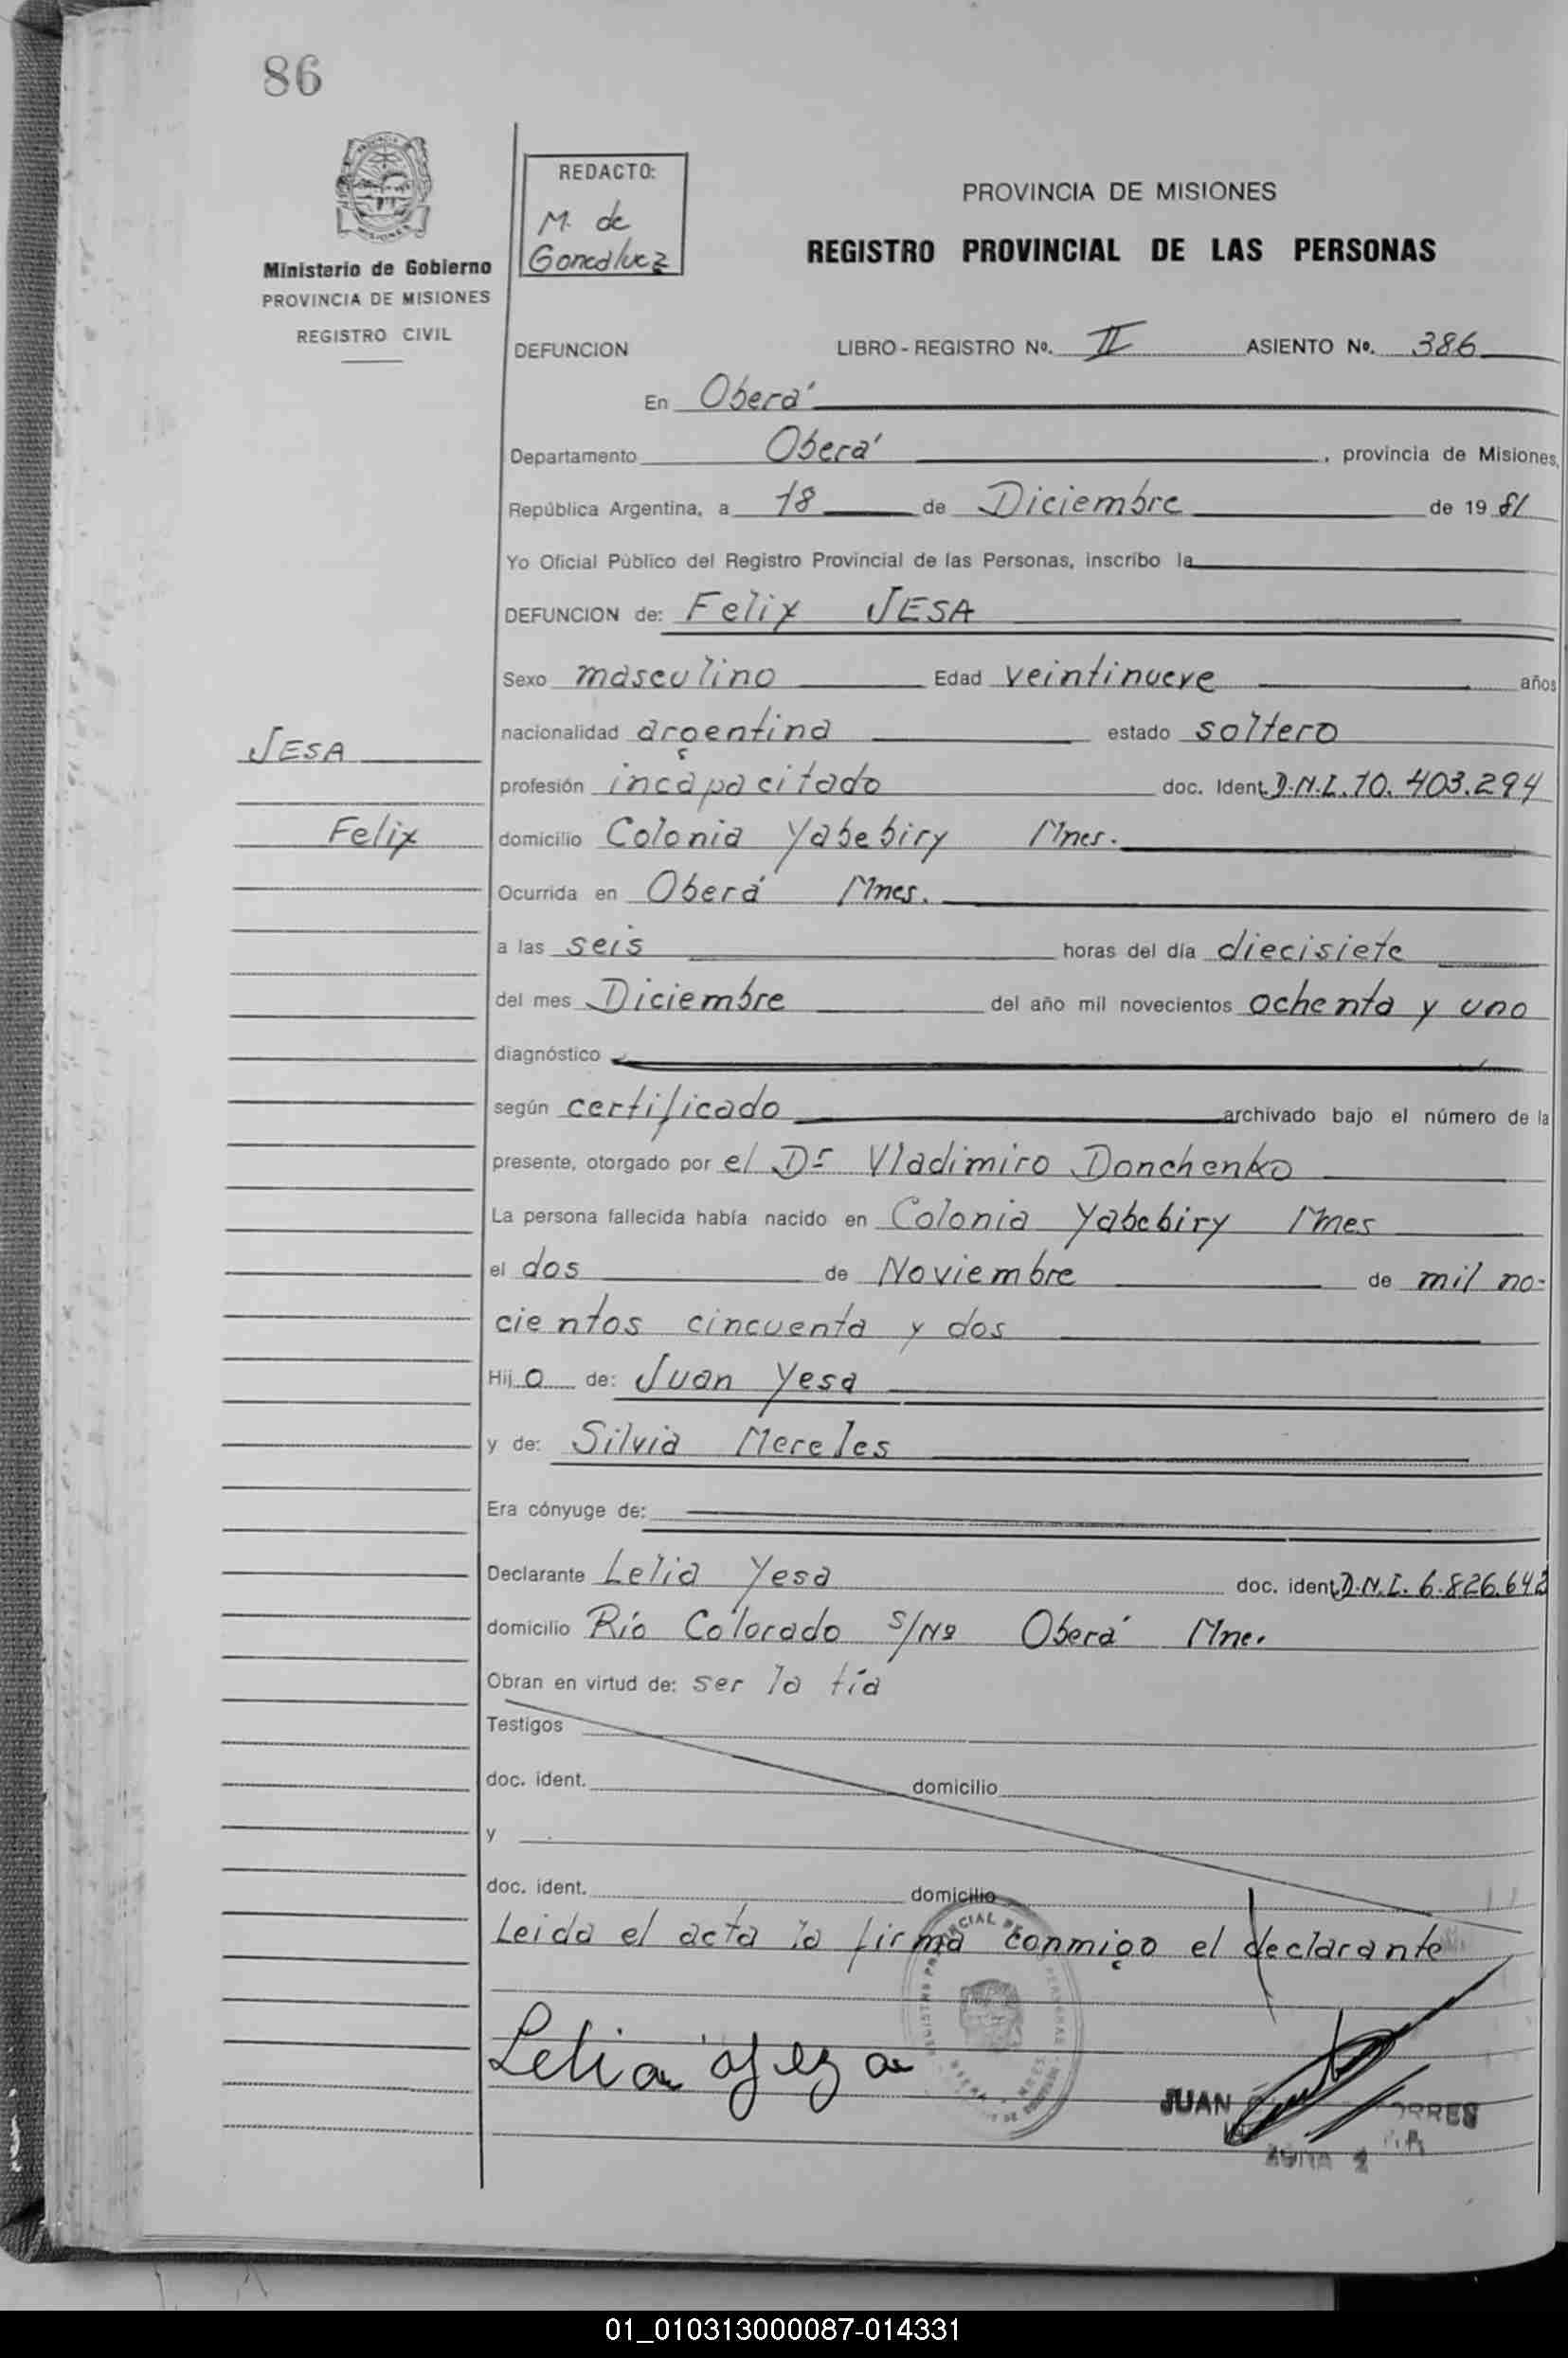 86
REDACTO:
M. de
Goncalvez
Ministerio de Gobierno
PROVINCIA DE MISIONES
REGISTRO CIVIL
PROVINCIA DE MISIONES
REGISTRO PROVINCIAL DE LAS PERSONAS
DEFUNCION LIBRO - REGISTRO Nº. II ASIENTO Nº. 386
En Oberá
Departamento Oberá, provincia de Misiones,
República Argentina, a 18 de Diciembre de 1981
Yo Oficial Público del Registro Provincial de las Personas, inscribo la
DEFUNCION de: Felix JESA
Sexo masculino Edad veintinueve años
JESA
Felix
nacionalidad argentina estado soltero
profesión incapacitado doc. Ident. D.N.I. 10.403.294
domicilio Colonia Yabebiry Mnes.
Ocurrida en Oberá Mnes.
a las seis horas del día diecisiete
del mes Diciembre del año mil novecientos ochenta y uno
diagnóstico
según certificado archivado bajo el número de la
presente, otorgado por el Dr Vladimiro Donchenko
La persona fallecida había nacido en Colonia Yabebiry Mnes
el dos de Noviembre de mil no-
cientos cincuenta y dos
Hijo de: Juan Yesa
y de: Silvia Mereles
Era cónyuge de:
Declarante Lelia Yesa doc. ident. D.N.I. 6.826.642
domicilio Río Colorado s/Nº Oberá Mne.
Obran en virtud de: ser la tía
Testigos
doc. ident. domicilio
y
doc. ident. domicilio
Leida el acta la firma conmigo el declarante
Lelia
JUAN
01_010313000087-014331